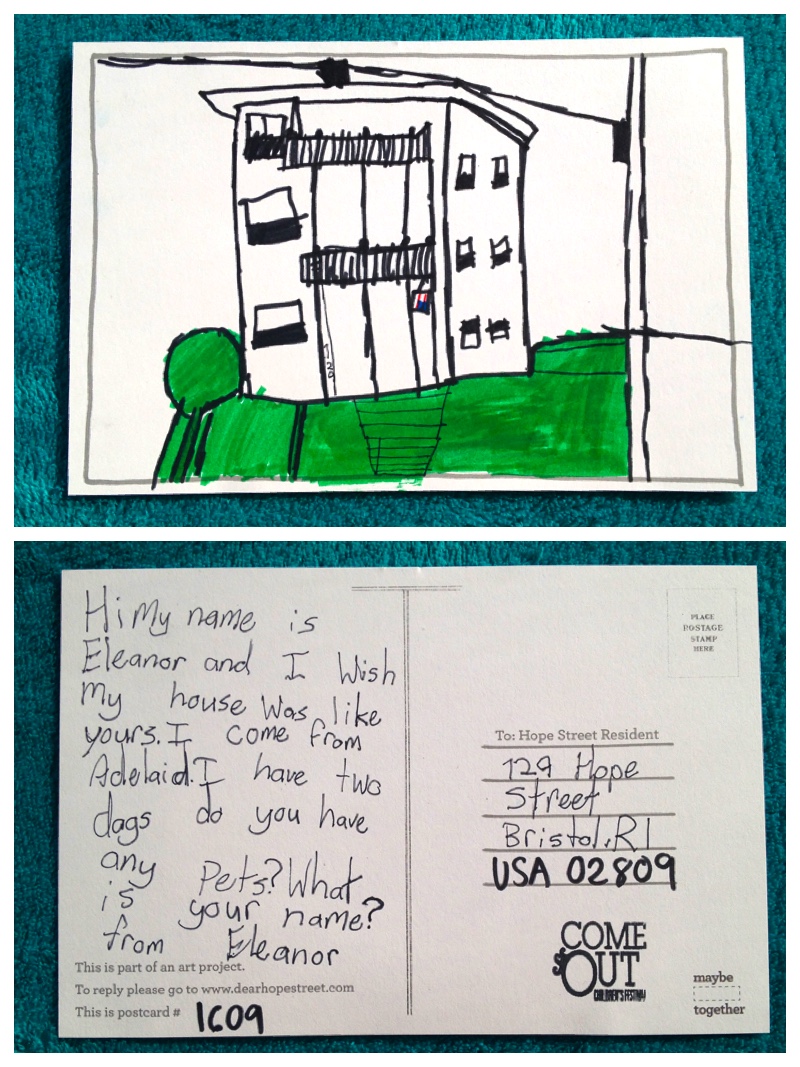 129
Hi My name is
Eleanor and I Wish
My house was like
yours. I come from
Adelaid. I have two
dags do you have
any Pets? What
is your name?
from Eleanor
This is part of an art project.
To reply please go to www.dearhopestreet.com
This is postcard # 1609
PLACE
POSTAGE
STAMP
HERE
To: Hope Street Resident
129 Hope
Street
Bristol, RI
USA 02809
COME
OUT
CHILDREN'S FESTIVAL
maybe
together